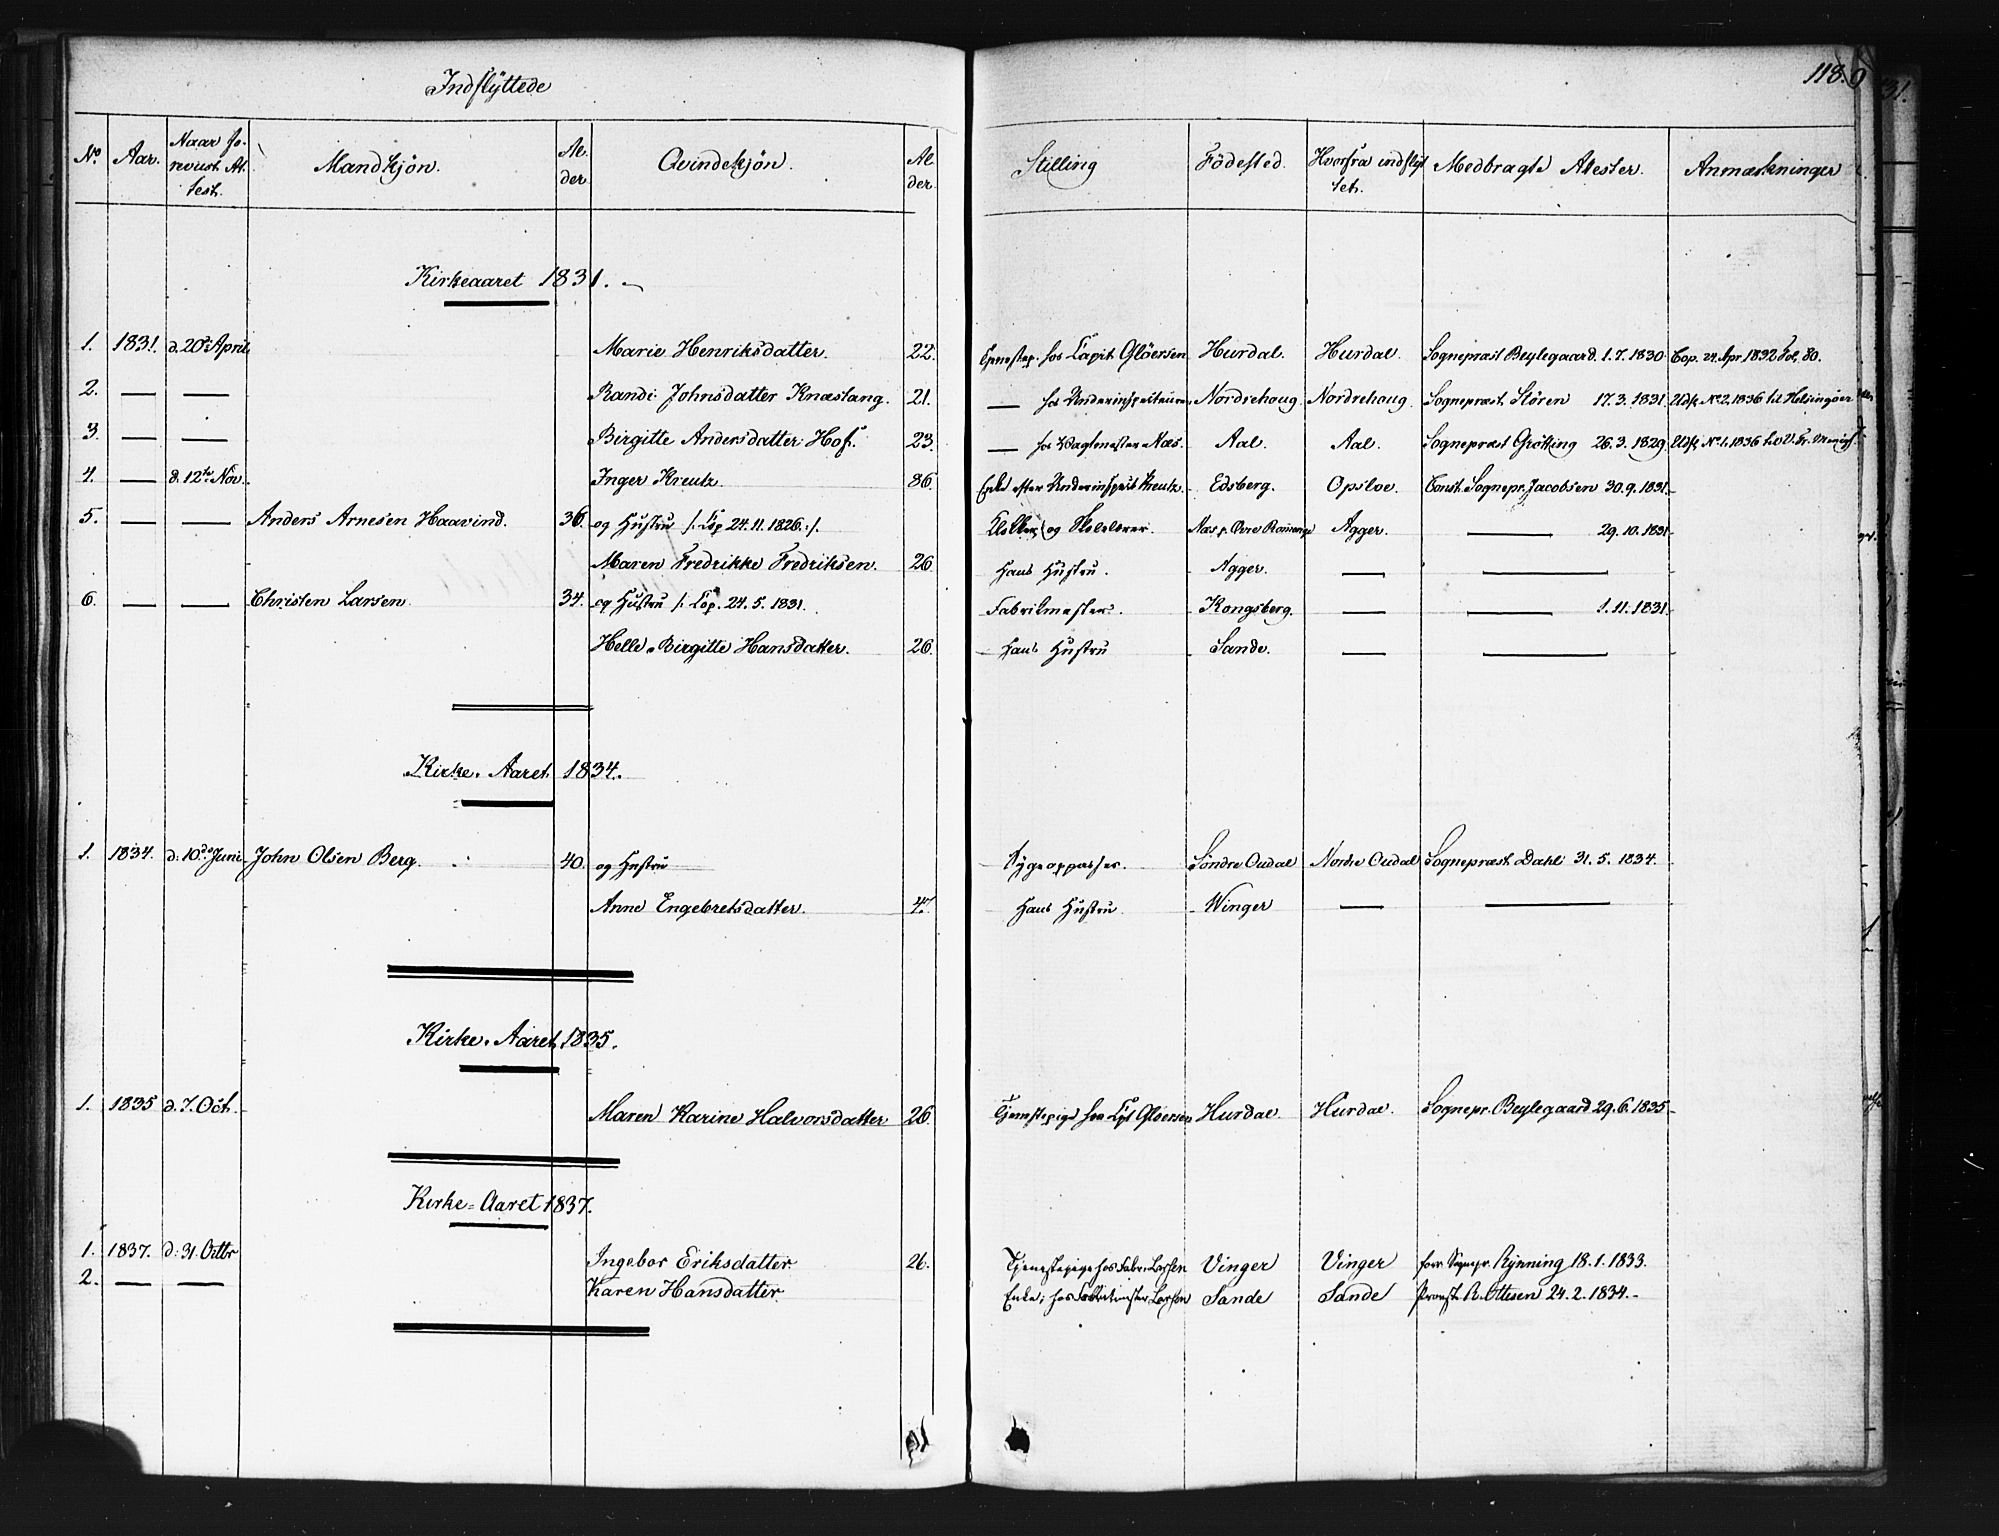 Indflÿttede
118.
No. Aar. Naar fo- Mandkjön. Al- Qvindekjön. Al- Stilling Födested. Hvorfra indflÿt- Medbragte Atester. Anmærkninger
revist At- der der. tet.
test.
Kirkeaaret 1831.
1. 1831. d. 20de April Marie Henriksdatter. 22. Tjenestep. hos Capit Glöersen Hurdal. Hurdal. Sognepræst Beylegaard. 1.7.1830. Cop. 24 Apr 1832 Fol. 80.
2. — — Randi Johnsdatter Knæstang. 21. — hos Underinspecteuren Nordrehoug Nordrehoug. Sognepræst. Stören 17.3.1831. Udfl. No 2. 1836 til Helsingöer
3. — — Birgitte Andersdatter Hof. 23. — hos Vagtmester Næs. Aal. Aal. Sognepræst Grötting 26.3.1829. Udfl. No 1. 1836
4. — d. 12te Nov. Inger Kreutz. 86. Enke efter Underinspect Kreutz. Edsberg. Opsloe. Const. Sognepr. Jacobsen 30.9.1831.
5. — — Anders Arnesen Haavind. 36. og Hustru /: Cop 24.11.1826. :/. Klokker og Skolelærer. Næs p. Övre Romerige Agger. — 29.10.1831.
Maren Fredrikke Fredriksen. 26 Hans Hustru. Agger. — —
6. — — Christen Larsen 34. og Hustru /: Cop. 24.5.1831. Fabrikmester. Kongsberg. — 1.11.1831.
Helle Birgitte Hansdatter. 26. Hans Hustru Sande. — —
Kirke-Aaret 1834.
1. 1834. d. 10de Juni John Olsen Berg. 40. og Hustru Sygeoppasser. Söndre Oudal Nordre Oudal Sognepræst. Dahl 31.5.1834.
Anne Engebretsdatter. 47. Hans Hustru. Winger — —
Kirke-Aaret 1835.
1. 1835 d. 7. Oct. Maren Karine Halvorsdatter 26. Tjenestepige hos Cpt Glöersen Hurdal. Hurdal. Sognepr. Beylegaard 29.6.1835.
Kirke-Aaret 1837.
1. 1837. d. 31. Octbr Ingebor Eriksdatter. 26. Tjenestepige hos Fabr. Larsen Vinger Vinger forr. Sognepr. Rÿnning 18.1.1833.
2. — — Karen Hansdatter. Enke; hos Fabrikmester Larsen Sande Sande Provst R. Ottesen 24.2.1834.